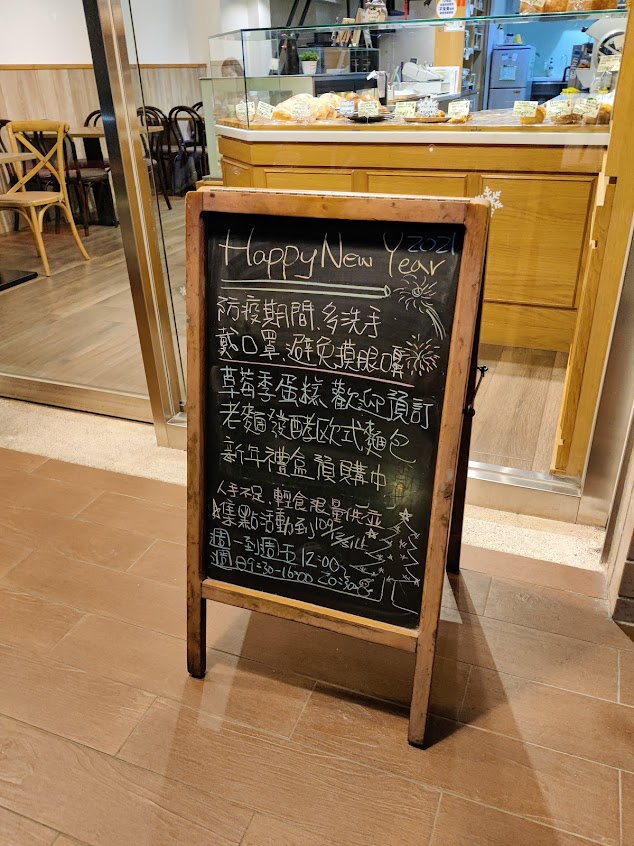 Happy New Year 2021
防疫期間、多洗手
戴口罩、避免摸眼口鼻
草莓季蛋糕 歡迎預訂
老麵發酵欧式麵包
新年禮盒預購中
人手不足,輕食限量供应
集點活動到109/12/31止
週一到週五 12:00~
週日9:30-16:00 20:30